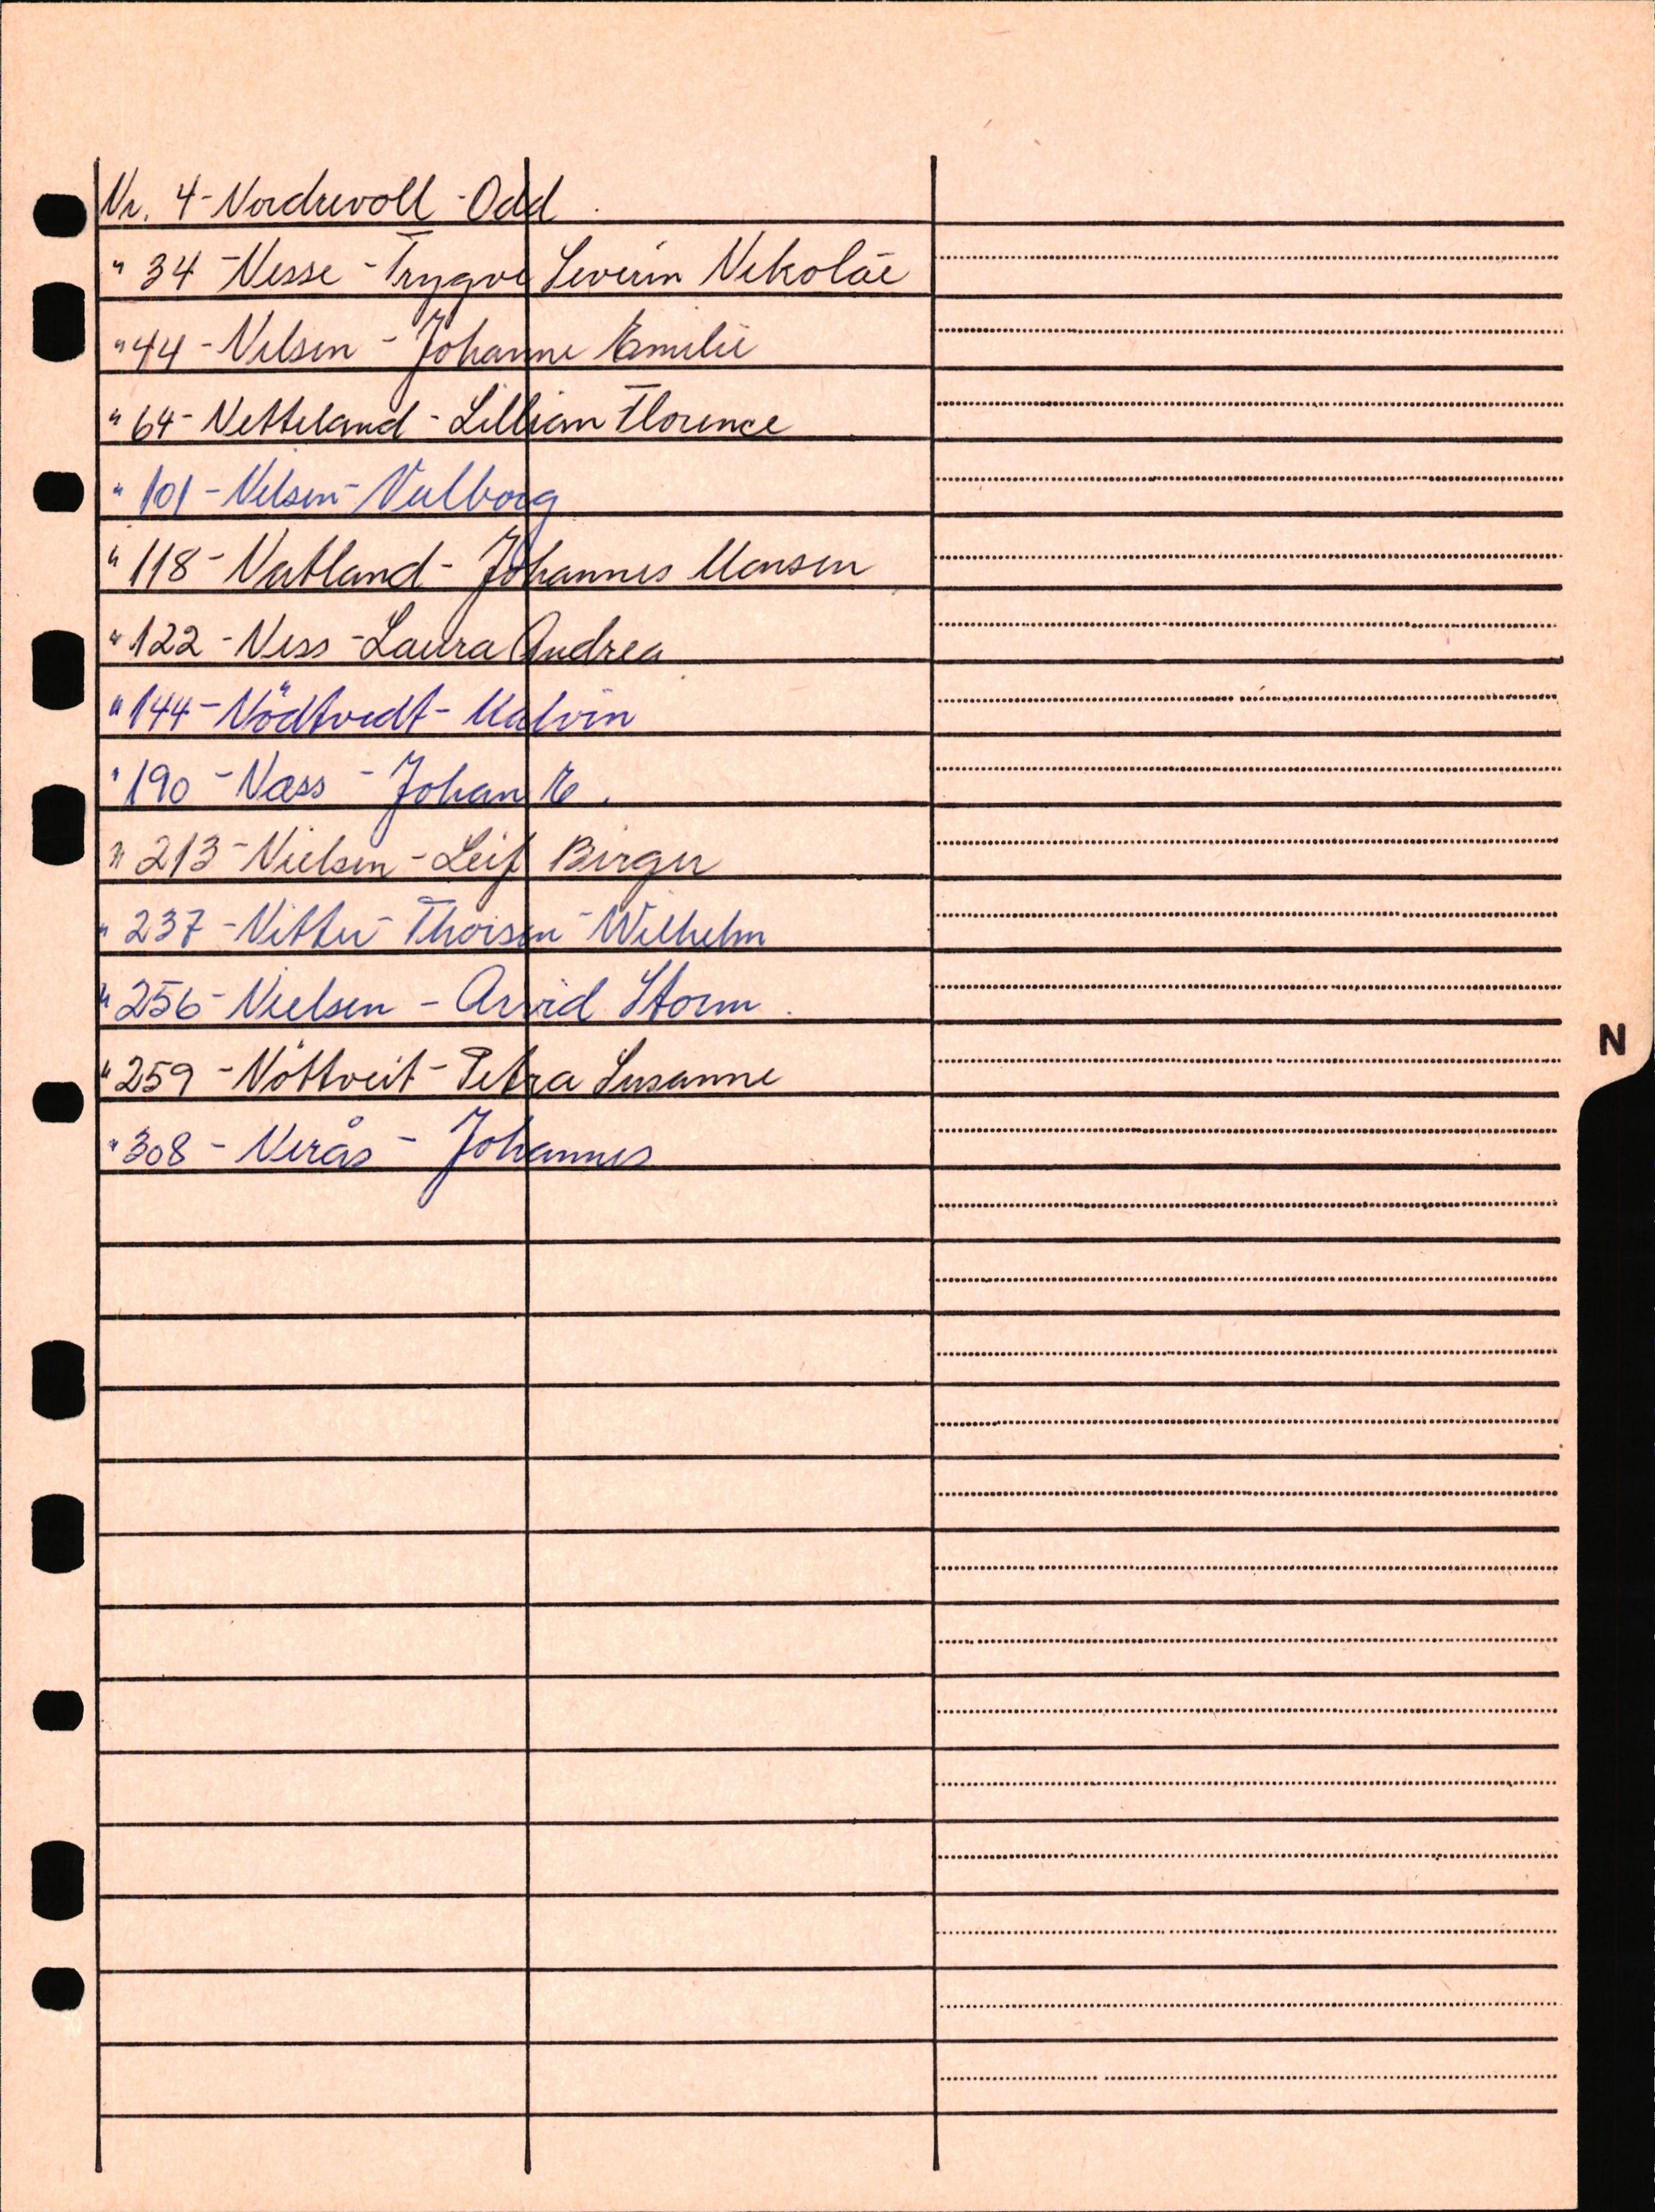 Nr. 4 - Nordrevoll - Odd
" 34 - Nesse - Trygve Severin Nikolai
" 44 - Nilsen - Johanne Emilie
" 64 - Netteland - Lillian Florence
" 101 - Nilsen - Valborg
" 118 - Natland - Johannes Monsen
" 122 - Ness - Laura Andrea
" 144 - Nödtvedt - Malvin
" 190 - Næss - Johan E.
" 213 - Nielsen - Leif Birger
" 237 - Nitter - Thorsen - Wilhelm
" 256 - Nielsen - Arvid Storm
" 259 - Nöttveit - Petra Susanne
" 308 - Nerås - Johannes
N